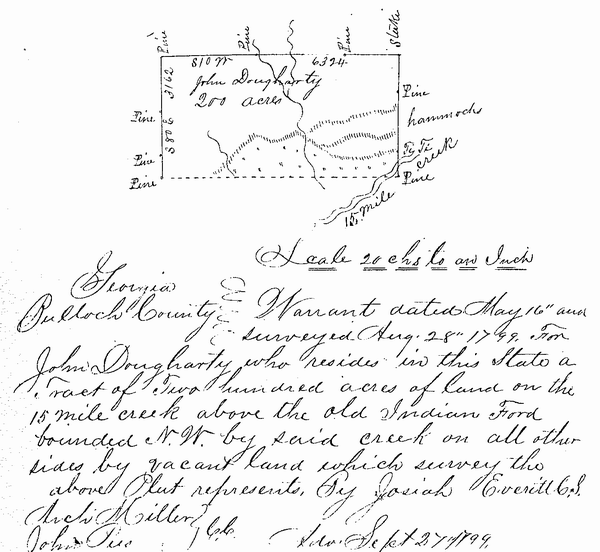 Pine Pine Pine Stake
S 10 W 63.24
3162 John Dougharty
200 acres
Pine
Pine hammocks
3806
Pine Ty Ti
creek
Pine Pine
15 mile
Scale 20 chs to an Inch
Georgia
Bulloch County Warrant dated May 16" and
surveyed Aug. 28" 1799. For
John Dougharty who resides in this State a
Tract of Two hundred acres of land on the
15 mile creek above the old Indian Ford
bounded N.W. by said creek on all other
sides by vacant land which survey the
above Plat represents. By Josiah Everitt C.S.
Arch Miller
John C.C. Sept 27" 1799